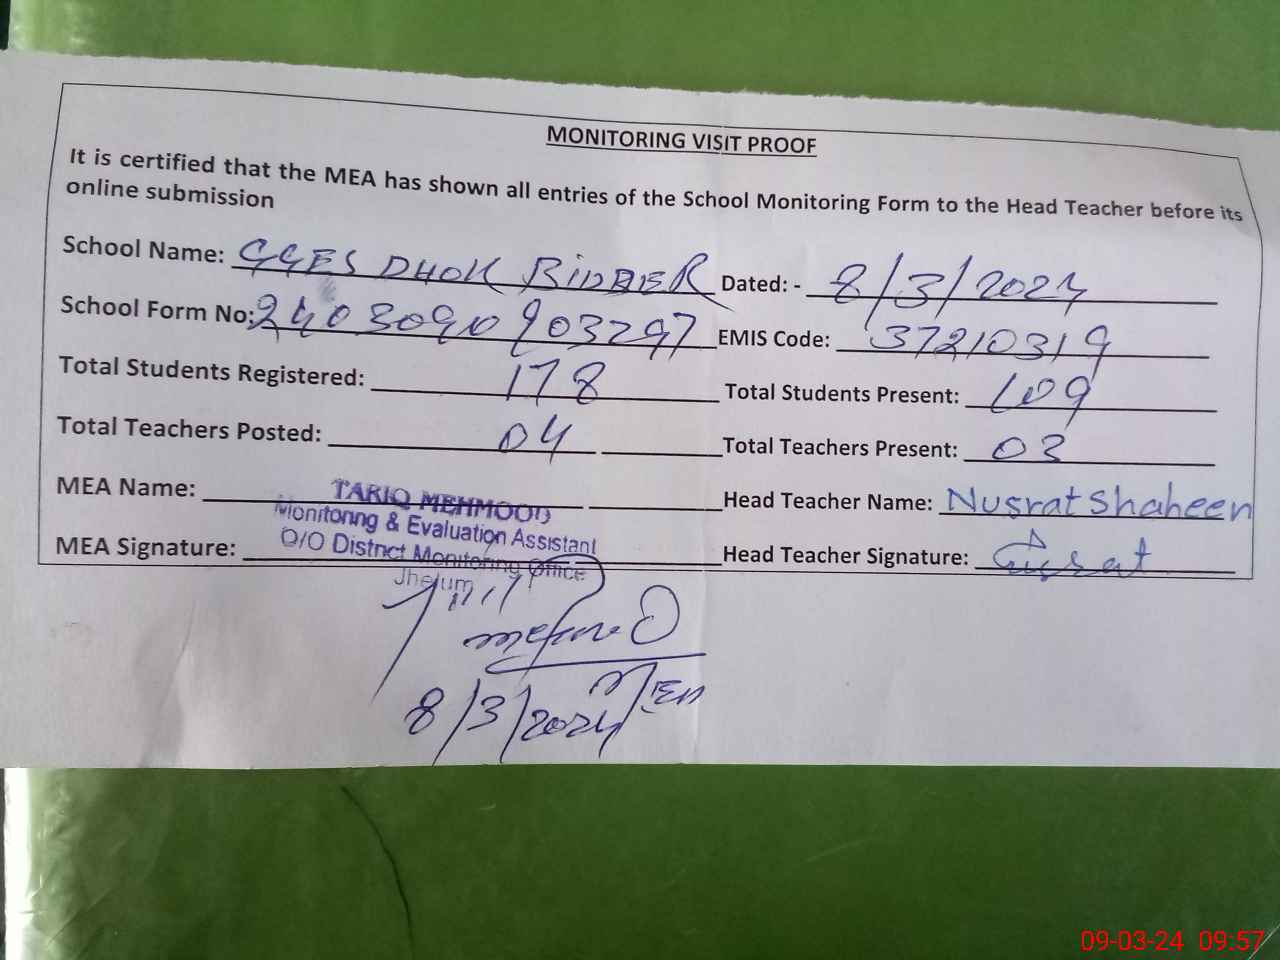 MONITORING VISIT PROOF
It is certified that the MEA has shown all entries of the School Monitoring Form to the Head Teacher before its
online submission
School Name: GGES DHOK BIDDER Dated: - 8/3/2024
School Form No: 2403090903297 EMIS Code: 37210319
Total Students Registered: 178 Total Students Present: 109
Total Teachers Posted: 04 Total Teachers Present: 03
MEA Name: TARIQ MEHMOOD Head Teacher Name: Nusrat Shaheen
Monitoring & Evaluation Assistant
MEA Signature: O/O District Monitoring Office Head Teacher Signature: Nusrat
Jhelum
MEA
8/3/2024
09-03-24 09:57